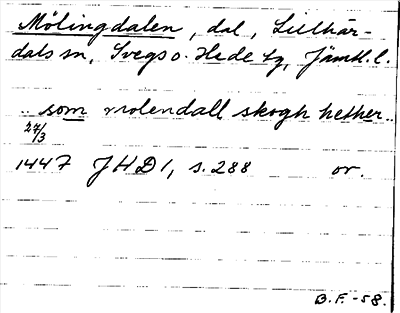 Mölingdalen, dal, Lillhär-
dals sn, Svegs o. Hede tg, Jämtl. l.
.. som molendall skogh hether ..
27/3
1447 JHD 1, s. 288 or.
B.F. -58.